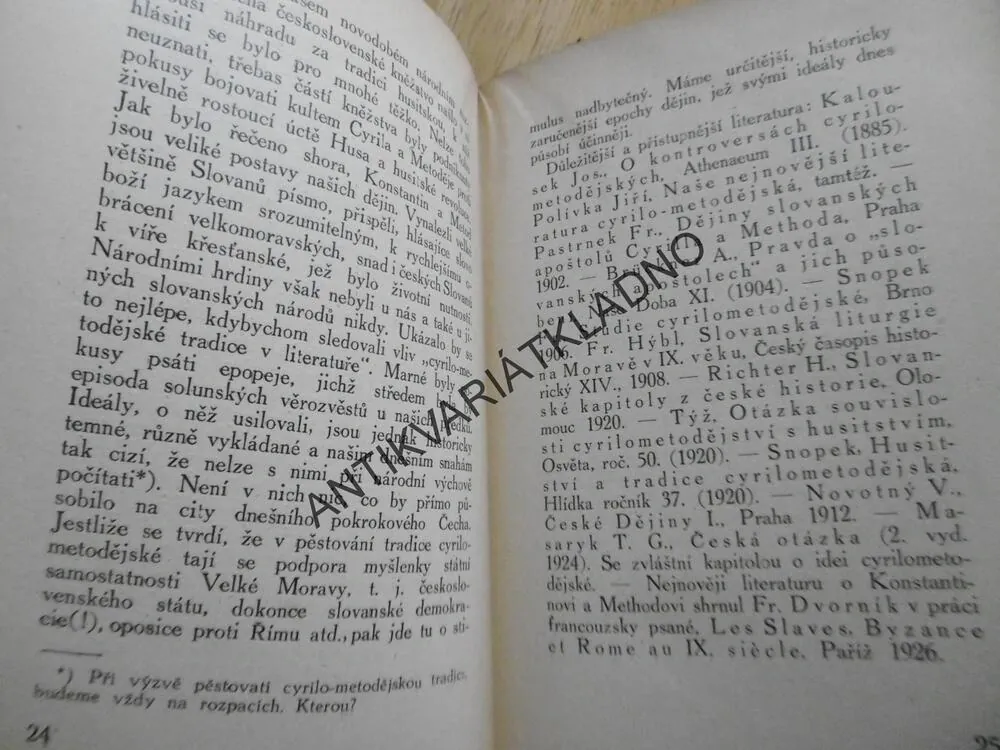 novodobém národním
československé kněžstvo našlo
náhradu za tradici husitskou, k níž
hlásiti se bylo pro mnohé těžko. Nelze
neuznati, třebas částí kněžstva byly podniknuty
pokusy bojovati kultem Cyrila a Metoděje proti
živelně rostoucí úctě Husa a husitské revoluce.
Jak bylo řečeno shora, Konstantin a Metod
jsou veliké postavy našich dějin. Vynalezli velké
většině Slovanů písmo, přispěli, hlásajíce slovo
boží jazykem srozumitelným, k rychlejšímu o-
brácení velkomoravských, snad i českých Slovanů
k víře křesťanské, jež bylo životní nutností.
Národními hrdiny však nebyli u nás a také u ji-
ných slovanských národů nikdy. Ukázalo by se
to nejlépe, kdybychom sledovali vliv „cyrilo-me-
todějské tradice v literatuře“. Marné byly
kusy psáti epopeje, jichž středem
episoda solunských věrozvěstů u našich předků.
Ideály, o něž usilovali, jsou jednak historicky
temné, různě vykládané a našim dnešním snahám
tak cizí, že nelze s nimi při národní výchově
počítati*). Není v nich nic, co by přímo pů-
sobilo na city dnešního pokrokového Čecha.
Jestliže se tvrdí, že v pěstování tradice cyrilo-
metodějské tají se podpora myšlenky státní
samostatnosti Velké Moravy, t. j. českoslo-
venského státu, dokonce slovanské demokra-
cie(!), oposice proti Římu atd., pak jde tu o sti-
*) Při výzvě pěstovati cyrilo-metodějskou tradici
budeme vždy na rozpacích. Kterou?
24
mulus nadbytečný. Máme určitější, historicky
zaručenější epochy dějin, jež svými ideály dnes
působí účinněji.
Důležitější a přístupnější literatura: Kalou-
sek Jos., O kontroversách cyrilo-
metodějských, Athenaeum III. (1885).
Polívka Jiří, Naše nejnovější lite-
ratura cyrilo-metodějská, tamtéž. —
Pastrnek Fr., Dějiny slovanských
apoštolů Cyrila a Methoda, Praha
1902. — A., Pravda o „slo-
vanských apoštolech“ a jich půso-
Naše Doba XI. (1904). — Snopek
Fr., Studie cyrilometodějské, Brno
1906. Fr. Hýbl, Slovanská liturgie
na Moravě v IX. věku, Český časopis histo-
rický XIV., 1908. — Richter H., Slovan-
ské kapitoly z české historie, Olo-
mouc 1920. — Týž, Otázka souvislo-
sti cyrilometodějství s husitstvím,
Osvěta, roč. 50. (1920). — Snopek, Husit-
ství a tradice cyrilometodějská,
Hlídka ročník 37. (1920). — Novotný V.,
České Dějiny I., Praha 1912. — Ma-
saryk T. G., Česká otázka (2. vyd.
1924). Se zvláštní kapitolou o idei cyrilometo-
dějské. — Nejnověji literaturu o Konstanti-
novi a Methodovi shrnul Fr. Dvorník v práci
francouzsky psané, Les Slaves, Byzance
et Rome au IX. siècle, Paříž 1926.
25
ANTIKVARIÁTKLADNO